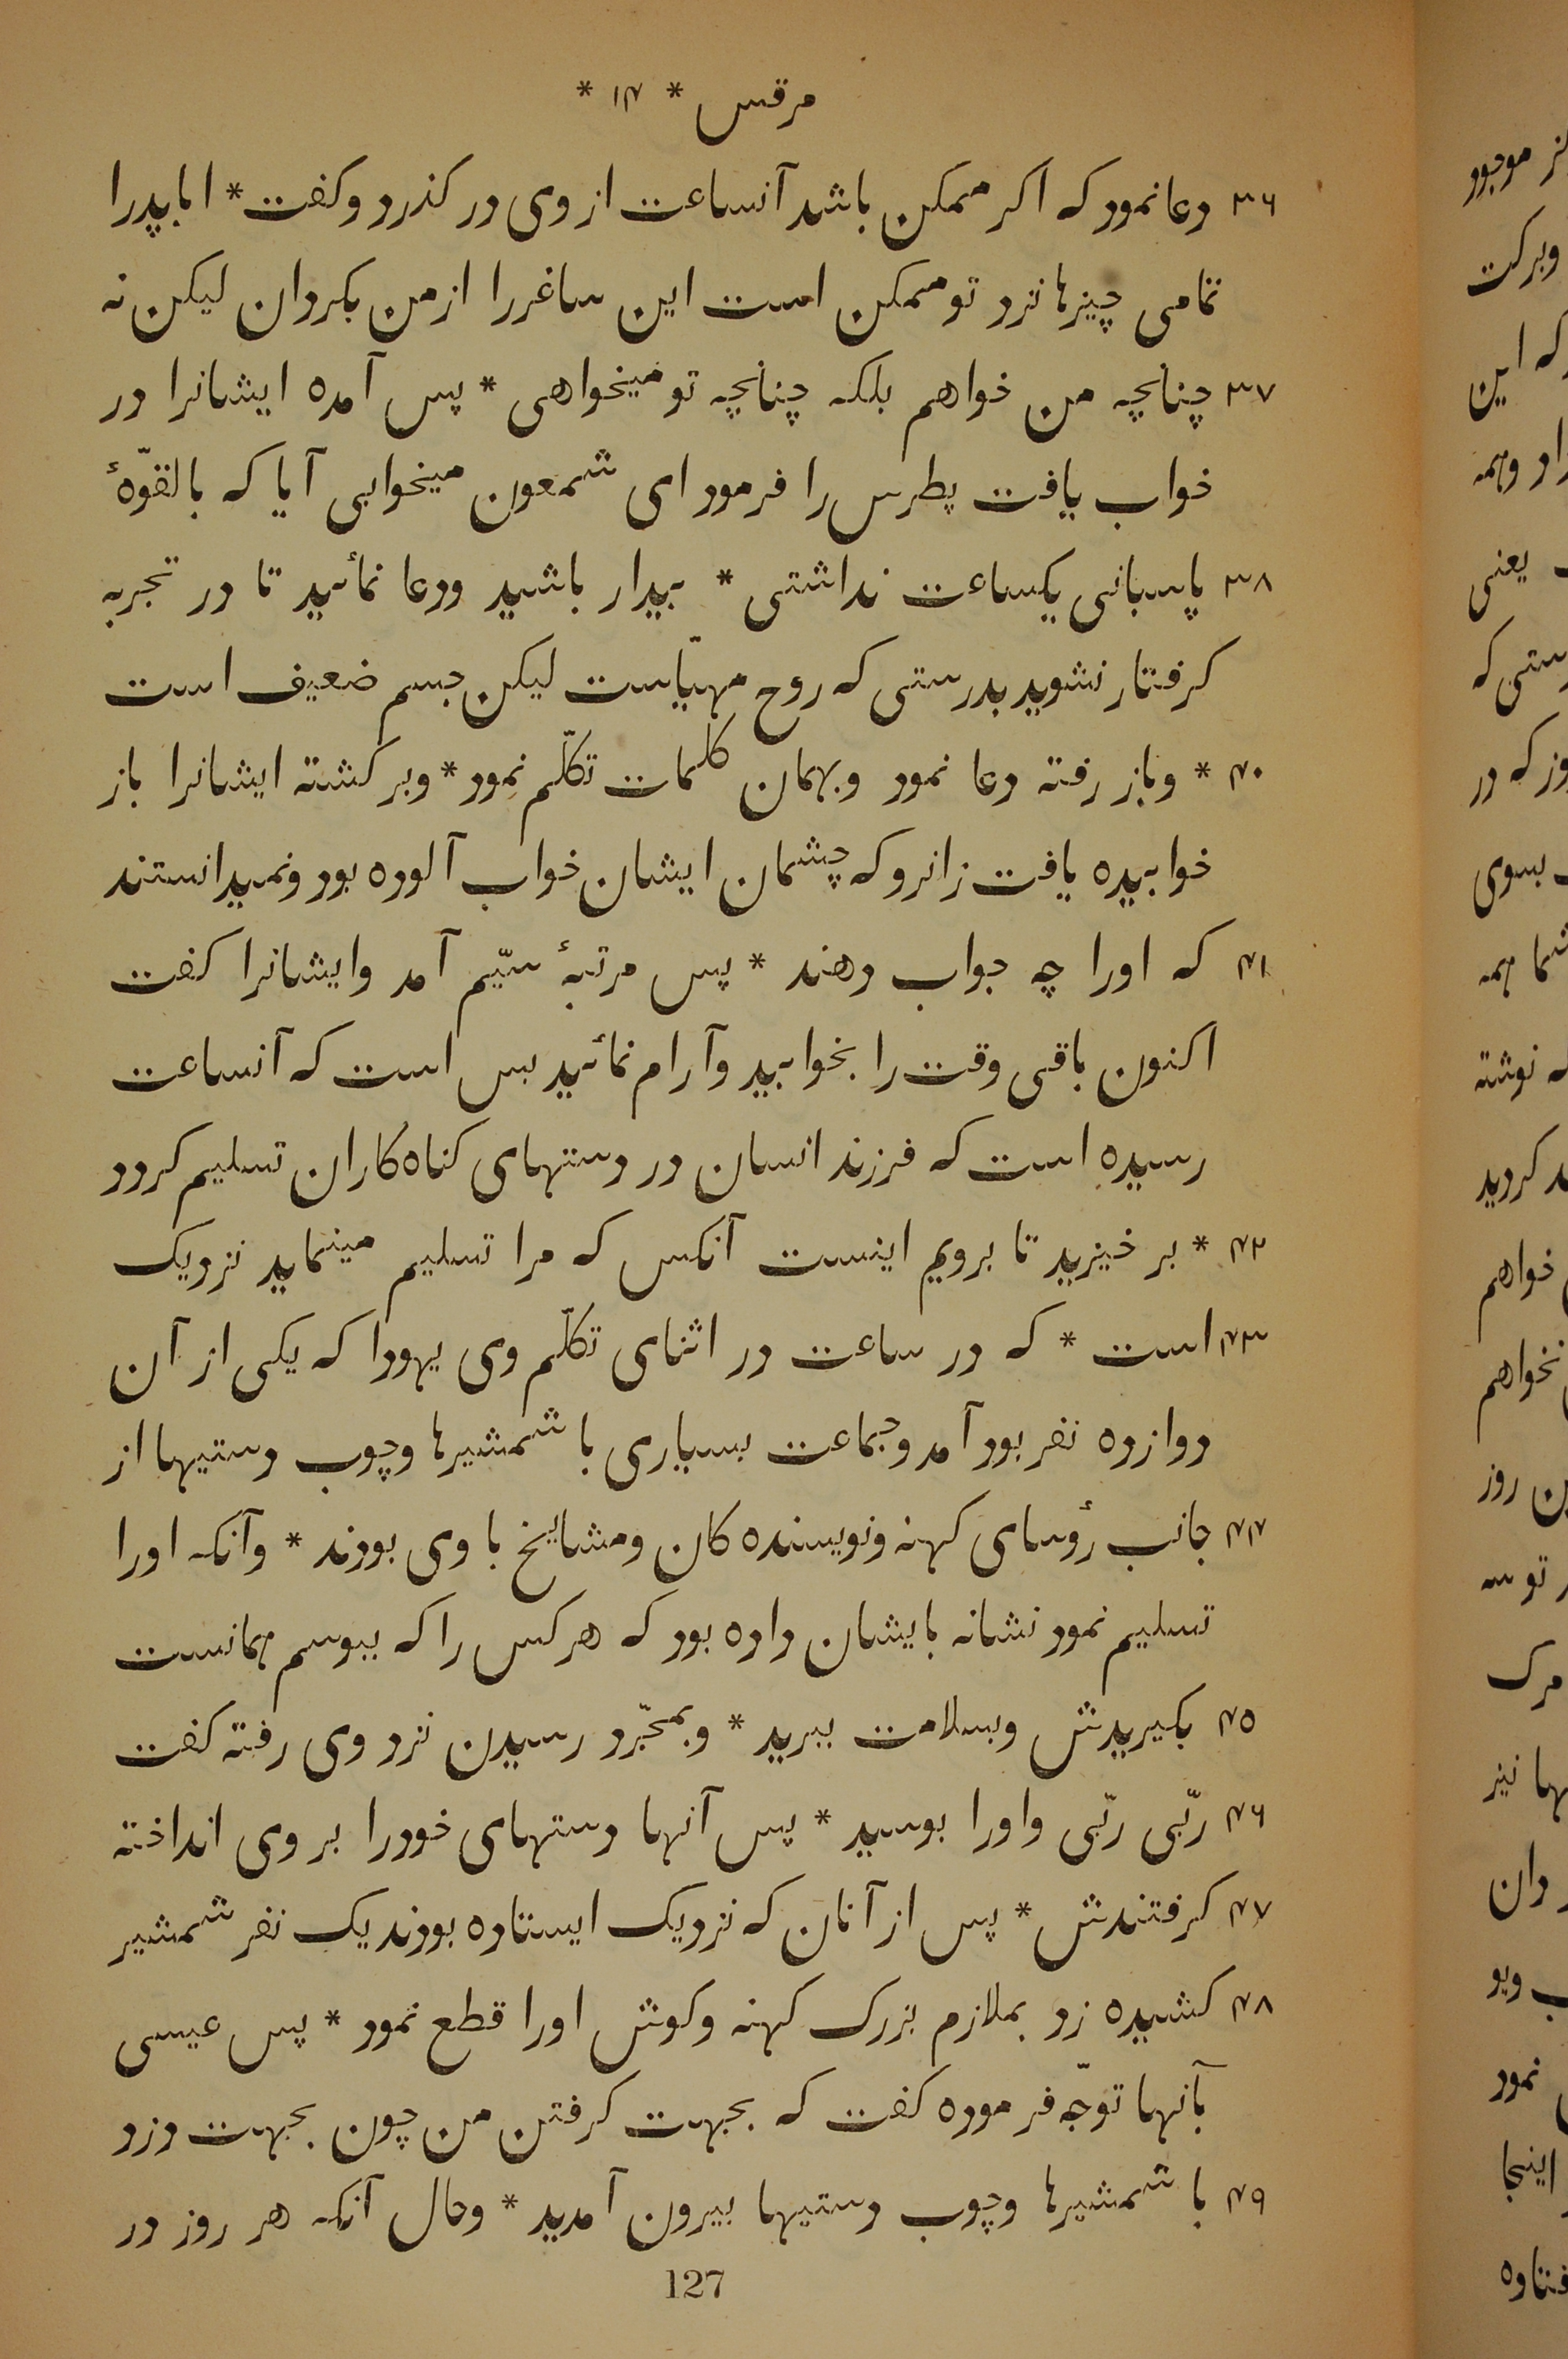 مرقس * ۱۴ *
۳۶ دعا نمود که اکر ممکن باشد آنساعت از وی در کذرد وکفت * ابا پدرا
تمامی چیزها نزد تو ممکن است این ساغر را از من بکردان لیکن نه
۳۷ چنانچه من خواهم بلکه چنانچه تو میخواهی * پس آمده ایشانرا در
خواب یافت پطرس را فرمود ای شمعون میخوابی آیا که بالقوّهٔ
۳۸ پاسبانی یکساعت نداشتی * بیدار باشید ودعا نمائید تا در تجربه
کرفتار نشوید بدرستی که روح مهیّاست لیکن جسم ضعیف است
۴۰ * وباز رفته دعا نمود وبهمان کلمات تکلّم نمود * وبر کشته ایشانرا باز
خوابیده یافت زانرو که چشمان ایشان خواب آلوده بود ونمیدانستند
۴۱ که اورا چه جواب دهند * پس مرتبهٔ سیّم آمد وایشانرا کفت
اکنون باقی وقت را بخوابید وآرام نمائید بس است که آنساعت
رسیده است که فرزند انسان در دستهای کناه‌کاران تسلیم کردد
۴۲ * بر خیزید تا برویم اینست آنکس که مرا تسلیم مینماید نزدیک
۴۳ است * که در ساعت در اثنای تکلّم وی یهودا که یکی از آن
دوازده نفر بود آمد وجماعت بسیاری با شمشیرها وچوب دستیها از
۴۴ جانب رؤسای کهنه ونویسنده کان ومشایخ با وی بودند * وآنکه اورا
تسلیم نمود نشانه بایشان داده بود که هر کس را که ببوسم همانست
۴۵ بکیریدش وبسلامت ببرید * وبمجّرد رسیدن نزد وی رفته کفت
۴۶ ربّی ربّی واورا بوسید * پس آنها دستهای خودرا بر وی انداخته
۴۷ کرفتندش * پس از آنان که نزدیک ایستاده بودند یک نفر شمشیر
۴۸ کشیده زد بملازم بزرک کهنه وکوش اورا قطع نمود * پس عیسی
بآنها توجّه فرموده کفت که بجهت کرفتن من چون بجهت دزد
۴۹ با شمشیرها وچوب دستیها بیرون آمدید * وحال آنکه هر روز در
127
موجود
وبرکت
که این
وهمه
یعنی
که
که در
بسوی
شما همه
نوشته
کردید
خواهم
نخواهم
روز
تو سه
مرک
نیز
نمود
اینجا